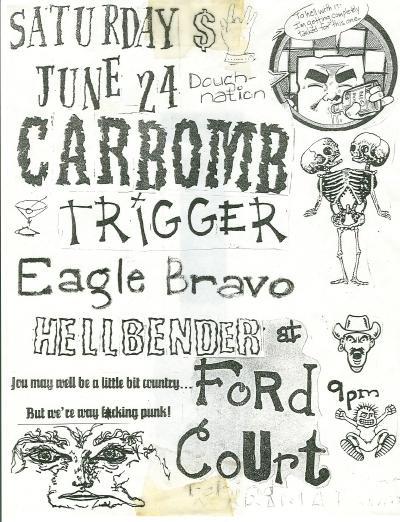 SATURDAY $
JUNE 24
Douch-
nation
To hell with it:
I'm getting completly
faked for this one.
CARBOMB
TRiGGER
Eagle Bravo
HELLBENDER at
FoRd
CoUrt
9pm
You may well be a little bit country...
But we're way f*cking punk!